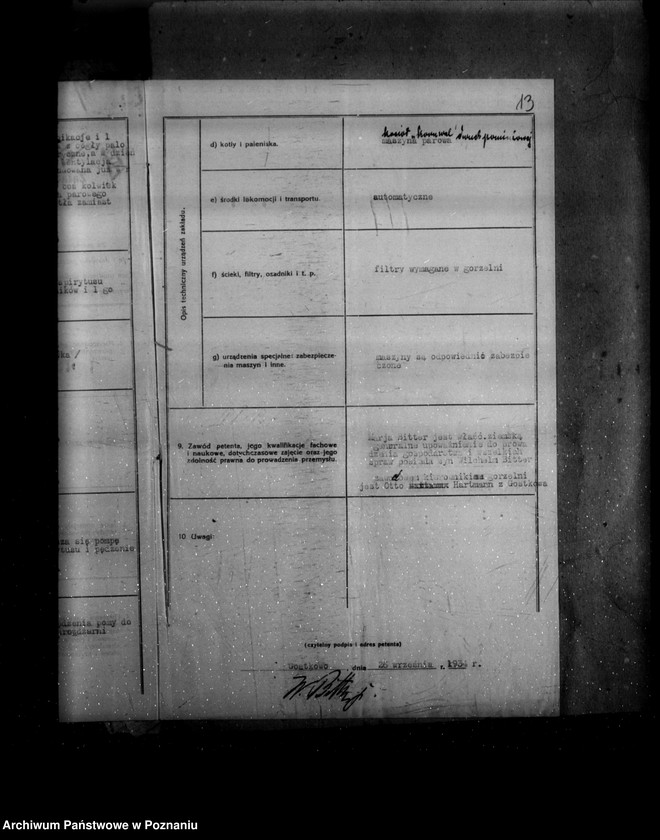 13
ikacje i 1
z cegły palo
a dzień
wentylacja
sowana już
boś kolwiek
parowego
zamiast
spirytusu
ików i 1 go
pompę
tusu i pędzenie
pomy do
Opis techniczny urządzeń zakładu.
d) kotły i paleniska.
kocioł
maszyna parowa
e) środki lokomocji i transportu.
automatyczne
f) ścieki, filtry, osadniki i t. p.
filtry wymagane w gorzelni
g) urządzenia specjalne: zabezpiecze-
nia maszyn i inne.
maszyny są odpowiednio zabezpie
czone
9. Zawód petenta, jego kwalifikacje fachowe
i naukowe, dotychczasowe zajęcie oraz jego
zdolność prawna do prowadzenia przemysłu.
Marja Bitter jest właśc.ziemską
generalne upoważnienie do prowa
dzenia gospodarstwa i wszelkich
spraw posiada syn Wilhelm Bitter
kierownikiem gorzelni
jest Otto Hartmann z Gostkowa
10 Uwagi:
(czytelny podpis i adres petenta)
Gostkowo dnia 26 września r. 1934 r.